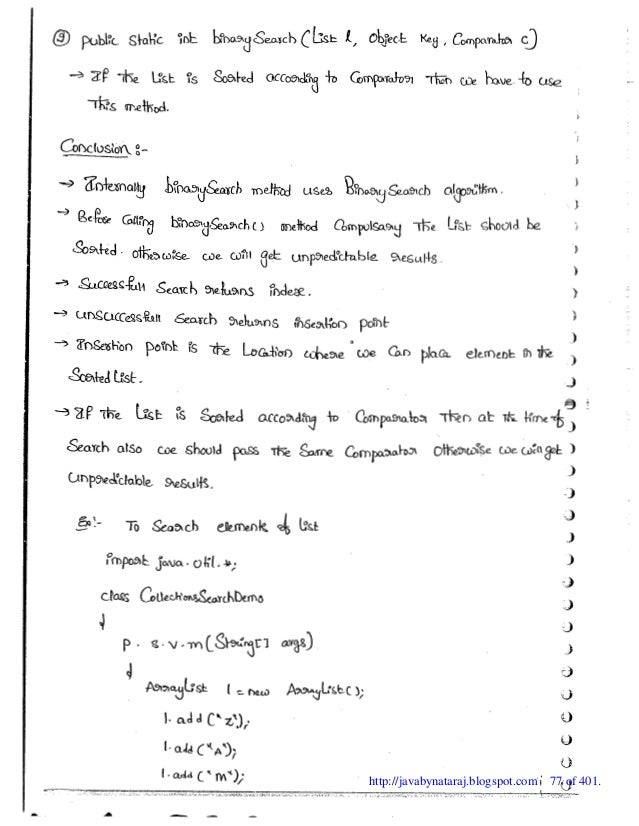 ⑨ public static int binarySearch(List l, Object Key, Comparator c)
→ If the List is Sorted according to Comparator Then we have to use
This method.
Conclusion :-
→ Internally binarySearch method uses BinarySearch algorithm.
→ Before Calling binarySearch() method Compulsary The List should be
Sorted. otherwise we will get unpredictable results.
→ Successfull Search returns index.
→ unsuccessfull Search returns insertion point
→ Insertion point is the Location where we Can place element in the
Sorted List.
→ If the List is Sorted according to Comparator Then at the time of
Search also we should pass the Same Comparator Otherwise we will get
unpredictable results.
Ex:- To Search elements of list
import java.util.*;
class CollectionsSearchDemo
{
p.s.v.m(String[] args)
{
ArrayList l = new ArrayList();
l.add("Z");
l.add("A");
l.add("M");
http://javabynataraj.blogspot.com 77 of 401.